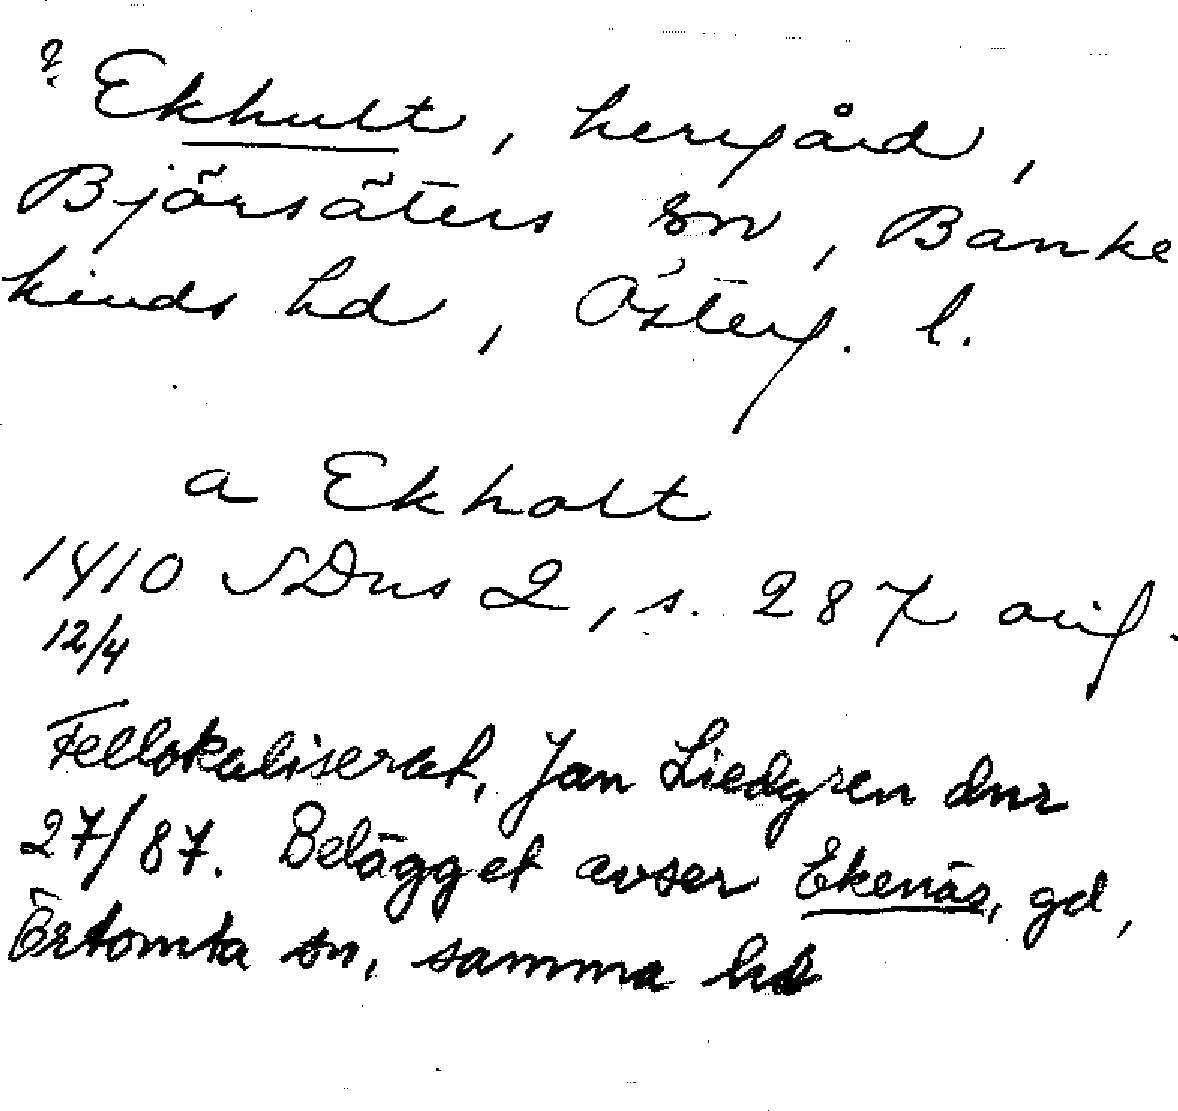 ? Ekhult, herrgård,
Björsäters sn, Banke
kinds hd, Österg. l.
a Ekholt
1410 SDns 2, s. 287 orig.
12/4
Fellokaliserat, Jan Liedgren dnr
27/87. Belägget avser Ekenäs, gd,
Örtomta sn, samma hd